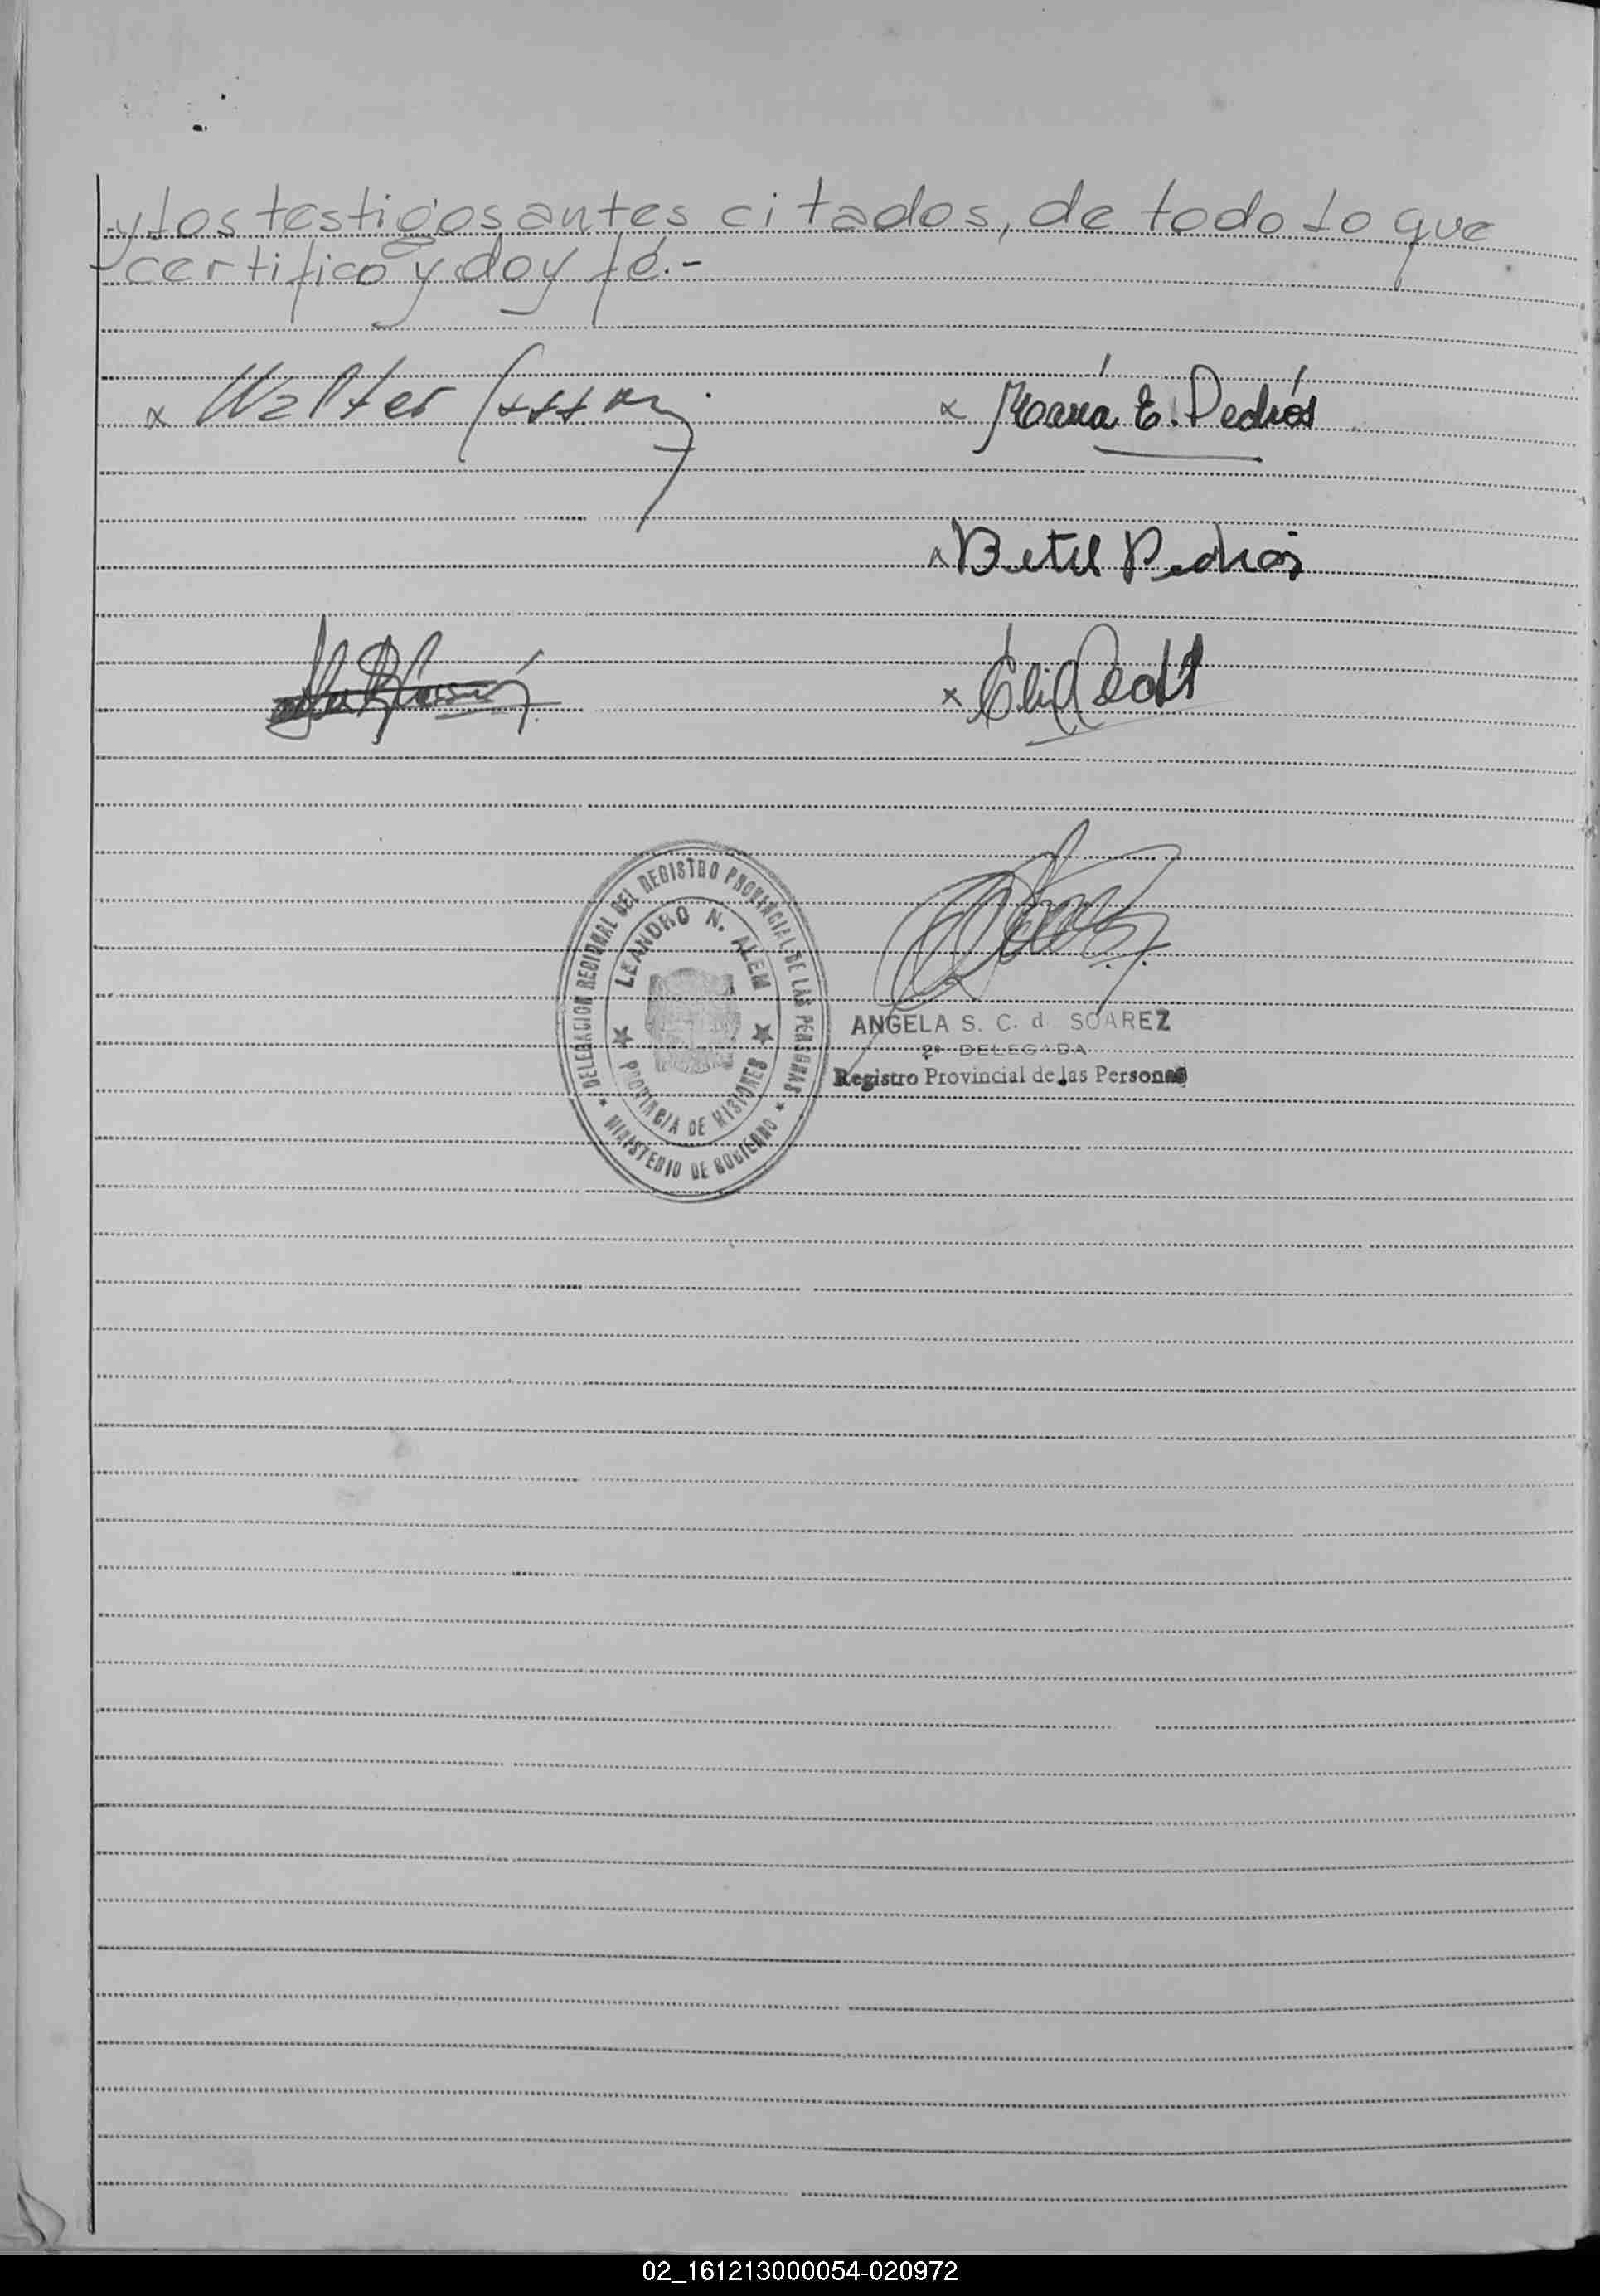 y los testigos antes citados, de todo lo que
certifico y doy fé.-
x Walter
x María E. Pedrós
x Betil Pedrós
x
DELEGACION REGIONAL DEL REGISTRO PROVINCIAL DE LAS PERSONAS
LEANDRO N. ALEM
PROVINCIA DE MISIONES
MINISTERIO DE GOBIERNO
ANGELA S. C. d SOAREZ
2º DELEGADA
Registro Provincial de las Personas
02_161213000054-020972